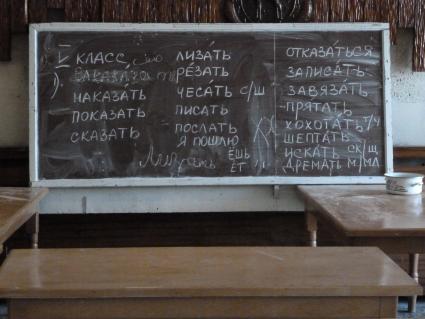 I КЛАСС,
ЗАКАЗАТЬ
НАКАЗАТЬ
ПОКАЗАТЬ
СКАЗАТЬ
ЛИЗАТЬ
РЕЗАТЬ
ЧЕСАТЬ С/Ш
ПИСАТЬ
ПОСЛАТЬ
Я ПОШЛЮ
ЕШЬ
ЕТ
ОТКАЗАТЬСЯ
ЗАПИСАТЬ
ЗАВЯЗАТЬ
ПРЯТАТЬ
ХОХОТАТЬ Т/Ч
ШЕПТАТЬ
ИСКАТЬ СК/Щ
ДРЕМАТЬ М/МЛ